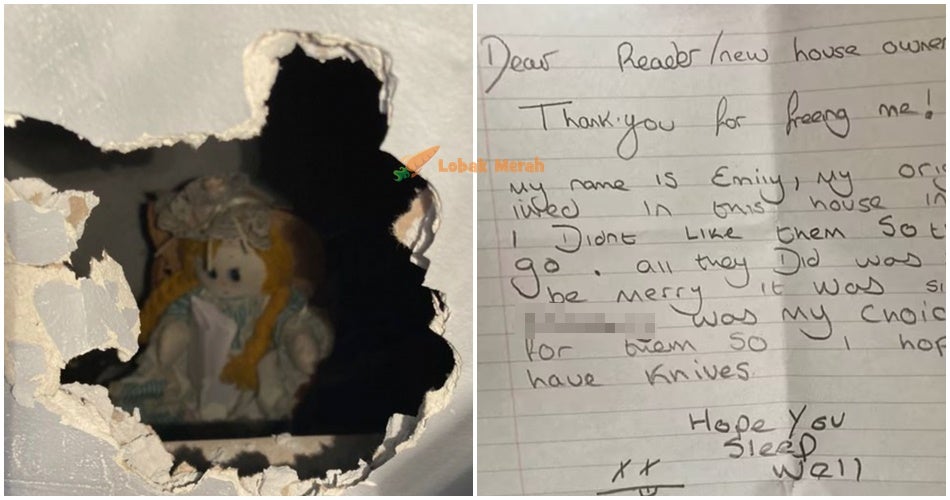 Lobak Merah
Dear Reader/new house owner
Thank.you for freeing me!
My name is Emily, My orig
lived in this house in
I Didnt Like them so t
go. all they Did was
be merry it was si
was My choic
for them so I hop
have Knives
Hope You
Sleep
Well
xx